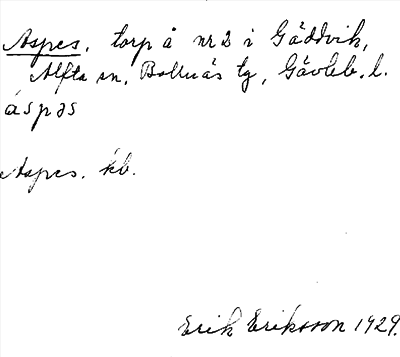 Aspes, torp å nr 2 i Gäddvik,
Alfta sn, Bollnäs tg, Gävleb. l.
áspəs
Aspes. kb.
Erik Eriksson 1929.